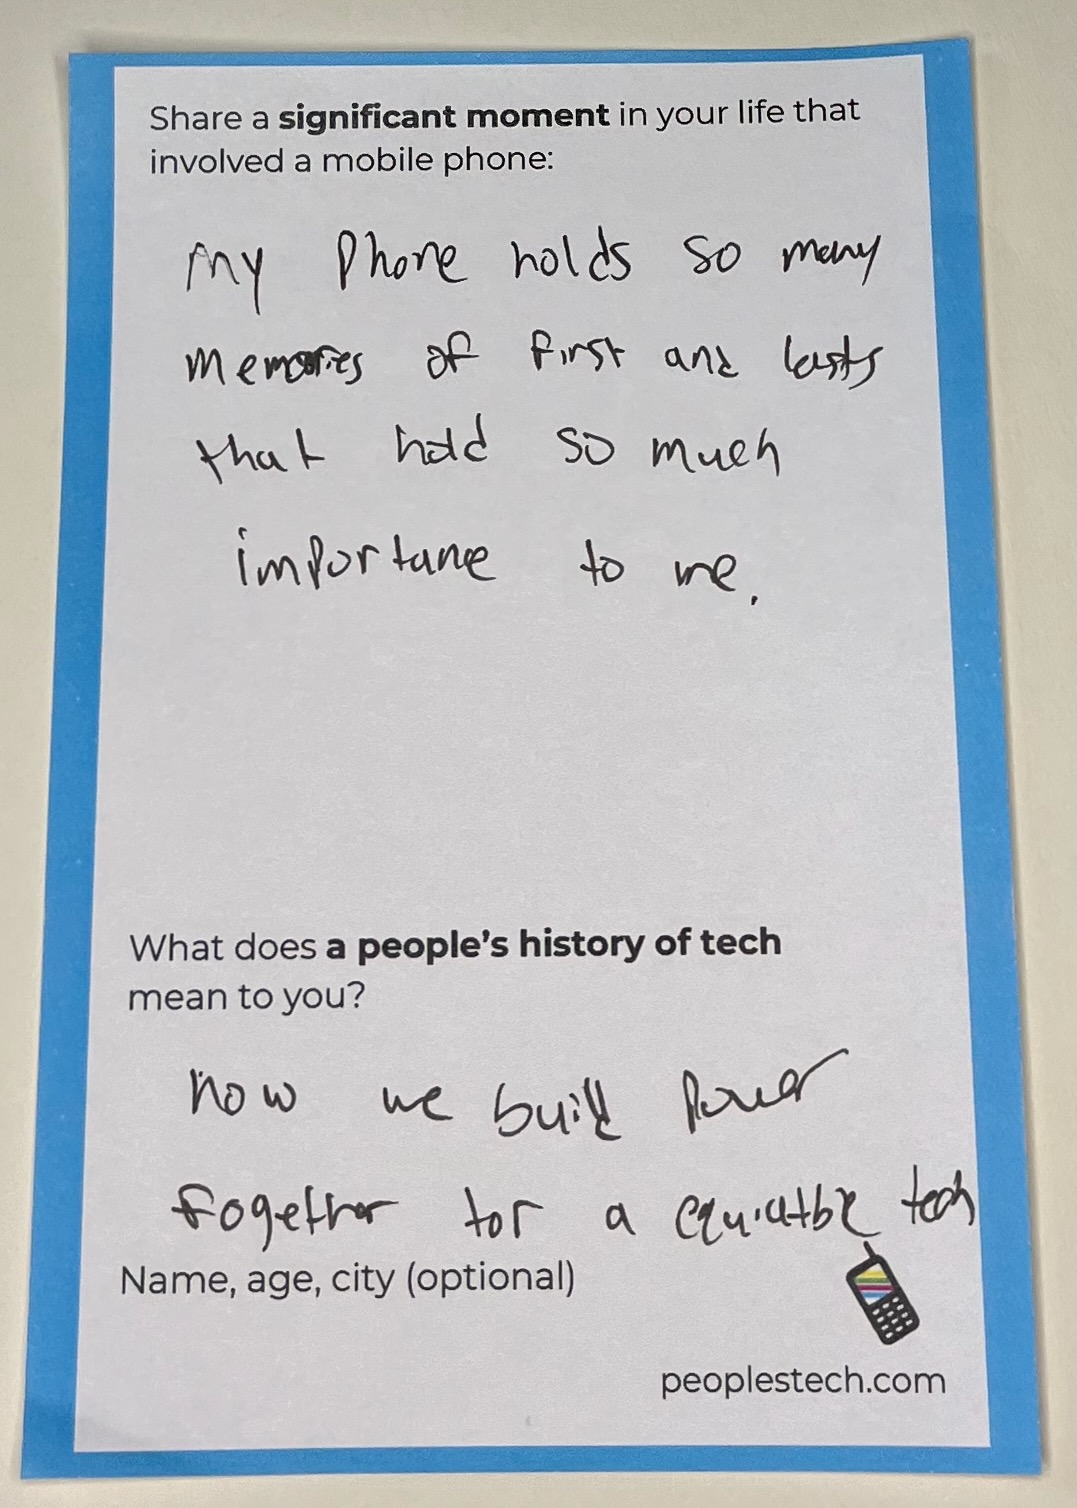 Share a significant moment in your life that
involved a mobile phone:
My Phone holds so many
memories of first and lasts
that hold so much
importance to me.
What does a people's history of tech
mean to you?
how we build power
together for a equitable tech
Name, age, city (optional)
peoplestech.com